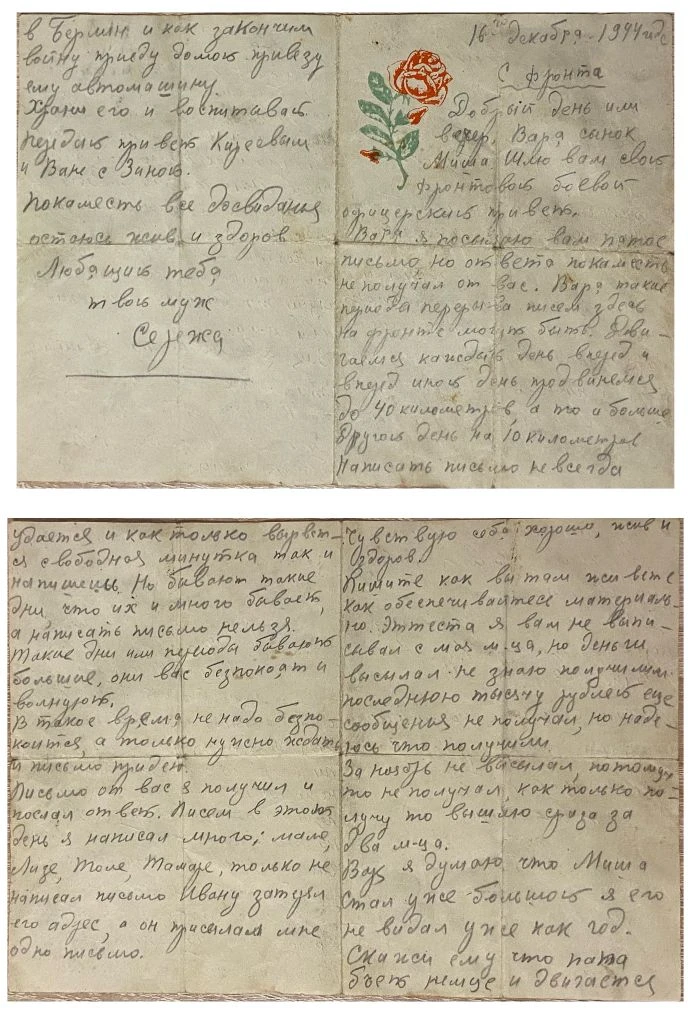 16го декабря 1944 года
С фронта
Добрый день или
вечер, Варя, сынок
Миша Шлю вам свой
фронтовой боевой
офицерский привет.
Варя я посылаю вам пятое
письмо, но ответа покаместь
не получал от вас. Варя такие
периода перерыва писем здесь
на фронте могут быть. Дви-
гаемся каждый день вперед и
вперед иной день продвинемся
до 40 километров, а то и больше
другой день на 10 километров
Написать письмо не всегда
удается и как только вырвет-
ся свободная минутка так и
напишешь. Но бывают такие
дни, что их и много бывает,
а написать письмо нельзя.
Такие дни или периоды бывают
большие, они вас безпокоят и
волнуют.
В такое время не надо безпо-
коится, а только нужно ждать
и письмо придет.
Письмо от вас я получил и
послал ответ. Писем в этот
день я написал много; маме,
Лизе, Толе, Тамаре, только не
написал письмо Ивану затерял
его адрес, а он присылал мне
одно письмо.
Чувствую себя хорошо, жив и
здоров.
Пишите как вы там живете
как обеспечивайтесь материаль-
но. Эттеста я вам не выпи-
сывал с мая м-ца, но деньги
высылал не знаю получили ли
последнюю тысячу рублей еще
сообщенья не получал, но наде-
юсь что получили.
За ноябрь не высылал, потому
то не получал, как только по-
лучу то вышлю сразу за
два м-ца.
Варя я думаю что Миша
стал уже большой я его
не видал уже как год.
Скажи ему что папа
бьет немце и двигается
в Берлин и как закончим
войну приеду домой привезу
ему автомашину.
Храни его и воспитывай.
Передай привет
и Ване с Зиной.
Покаместь все досвиданья
остаюсь жив и здоров
Любящий тебя
твой муж
Сережа